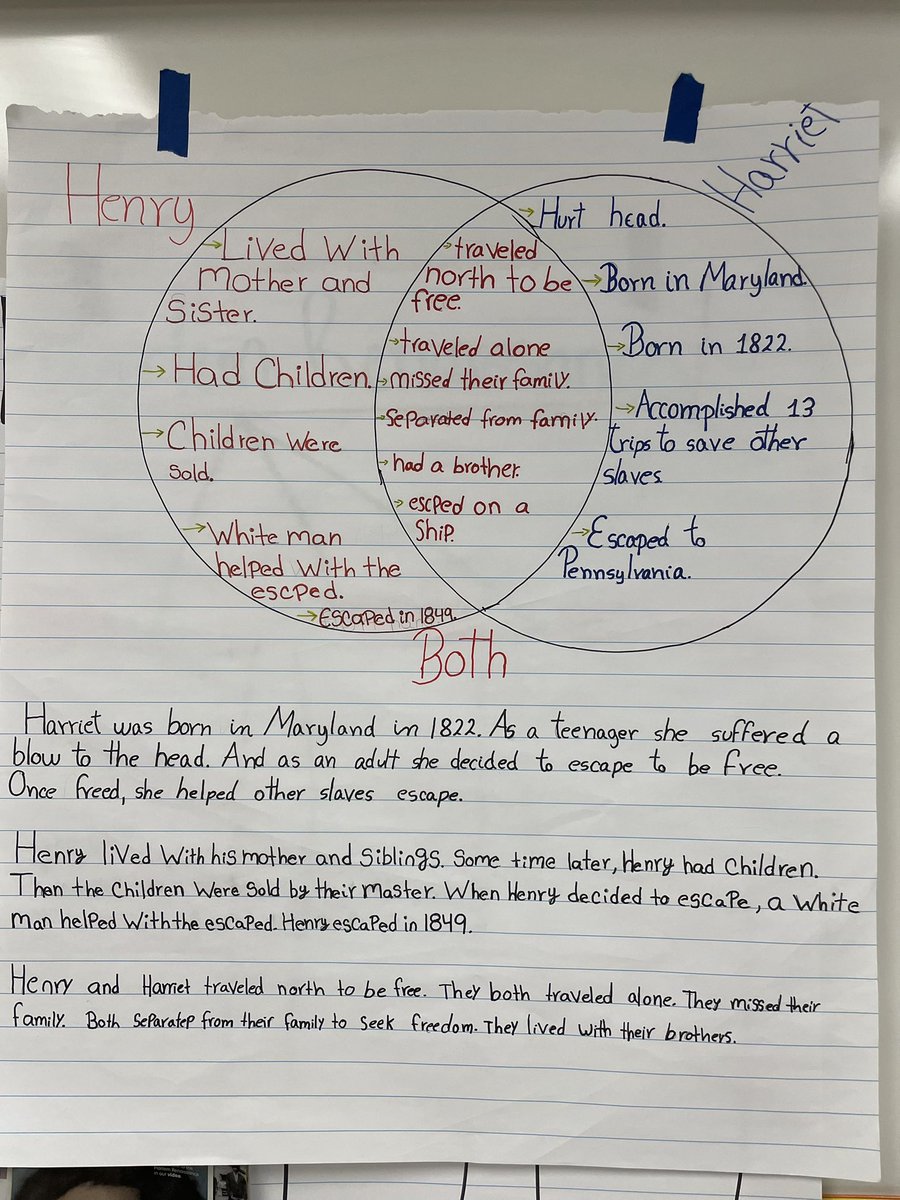 Henry
Harriet
→Lived With
Mother and
Sister.
→Had Children.
→Children Were
Sold.
→White man
helped With the
escped.
→Escaped in 1849.
→traveled
north to be
free.
→traveled alone
→missed their family.
→Separated from family.
→had a brother.
→escped on a
Ship.
→Hurt head.
→Born in Maryland.
→Born in 1822.
→Accomplished 13
trips to save other
slaves
→Escaped to
Pennsylvania.
Both
Harriet was born in Maryland in 1822. As a teenager she suffered a
blow to the head. And as an adult she decided to escape to be free.
Once freed, she helped other slaves escape.
Henry lived With his mother and Siblings. Some time later, Henry had Children.
Then the Children Were Sold by their Master. When Henry decided to escape, a White
Man helped With the escaped. Henry escaped in 1849.
Henry and Harriet traveled north to be free. They both traveled alone. They missed their
family. Both Separatep from their family to Seek freedom. They lived with their brothers.